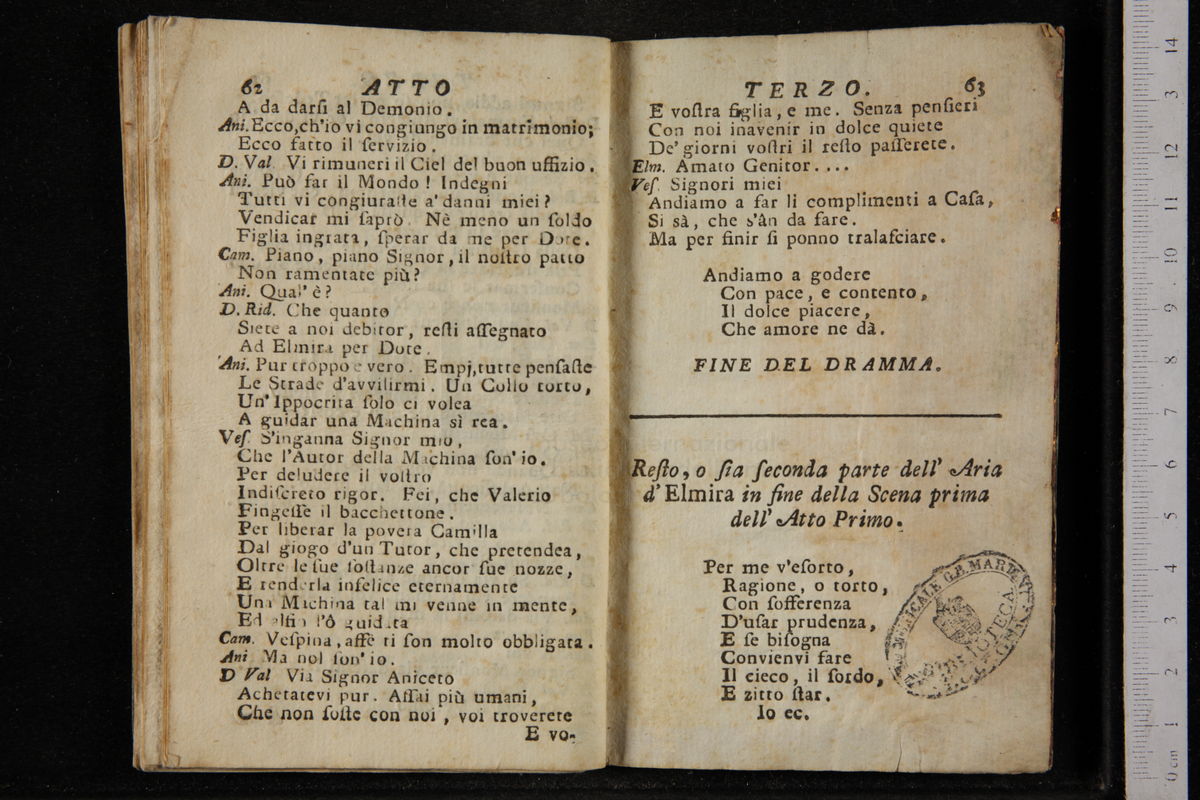 62 ATTO
A da darſi al Demonio.
Ani. Ecco, ch'io vi congiungo in matrimonio;
Ecco fatto il ſervizio.
D. Val. Vi rimuneri il Ciel del buon uffizio.
Ani. Può far il Mondo! Indegni
Tutti vi congiuraſte a' danni miei?
Vendicar mi ſaprò. Nè meno un ſoldo
Figlia ingrata, ſperar da me per Dote.
Cam. Piano, piano Signor, il noſtro patto
Non ramentate più?
Ani. Qual' è?
D. Rid. Che quanto
Siete a noi debitor, reſti aſſegnato
Ad Elmira per Dote.
Ani. Pur troppo e vero. Empj, tutte penſaſte
Le Strade d'avvilirmi. Un Collo torto,
Un' Ippocrita ſolo ci volea
A guidar una Machina sì rea.
Veſ. S'inganna Signor mio,
Che l'Autor della Machina ſon' io.
Per deludere il voſtro
Indiſcreto rigor. Fei, che Valerio
Fingeſſe il bacchettone.
Per liberar la povera Camilla
Dal giogo d'un Tutor, che pretendea,
Oltre le ſue ſoſtanze ancor ſue nozze,
E renderla infelice eternamente
Una Machina tal mi venne in mente,
Ed alfin l'ô guidata
Cam. Veſpina, affè ti ſon molto obbligata.
Ani Ma nol ſon' io.
D Val Via Signor Aniceto
Achetatevi pur. Aſſai più umani,
Che non foſte con noi, voi troverete
E vo-
TERZO. 63
E voſtra figlia, e me. Senza penſieri
Con noi inavenir in dolce quiete
De' giorni voſtri il reſto paſſerete.
Elm. Amato Genitor....
Veſ. Signori miei
Andiamo a far li complimenti a Caſa,
Si sà, che s'ân da fare.
Ma per finir ſi ponno tralaſciare.
Andiamo a godere
Con pace, e contento,
Il dolce piacere,
Che amore ne dà.
FINE DEL DRAMMA.
Reſto, o ſia ſeconda parte dell' Aria
d' Elmira in fine della Scena prima
dell' Atto Primo.
Per me v'eſorto,
Ragione, o torto,
Con ſofferenza
D'uſar prudenza,
E ſe biſogna
Convienvi fare
Il cieco, il ſordo,
E zitto ſtar.
Io ec.
G.B. MARTINI
BIBLIOTECA
BOLOGNA
0 cm 1 2 3 4 5 6 7 8 9 10 11 12 3 14